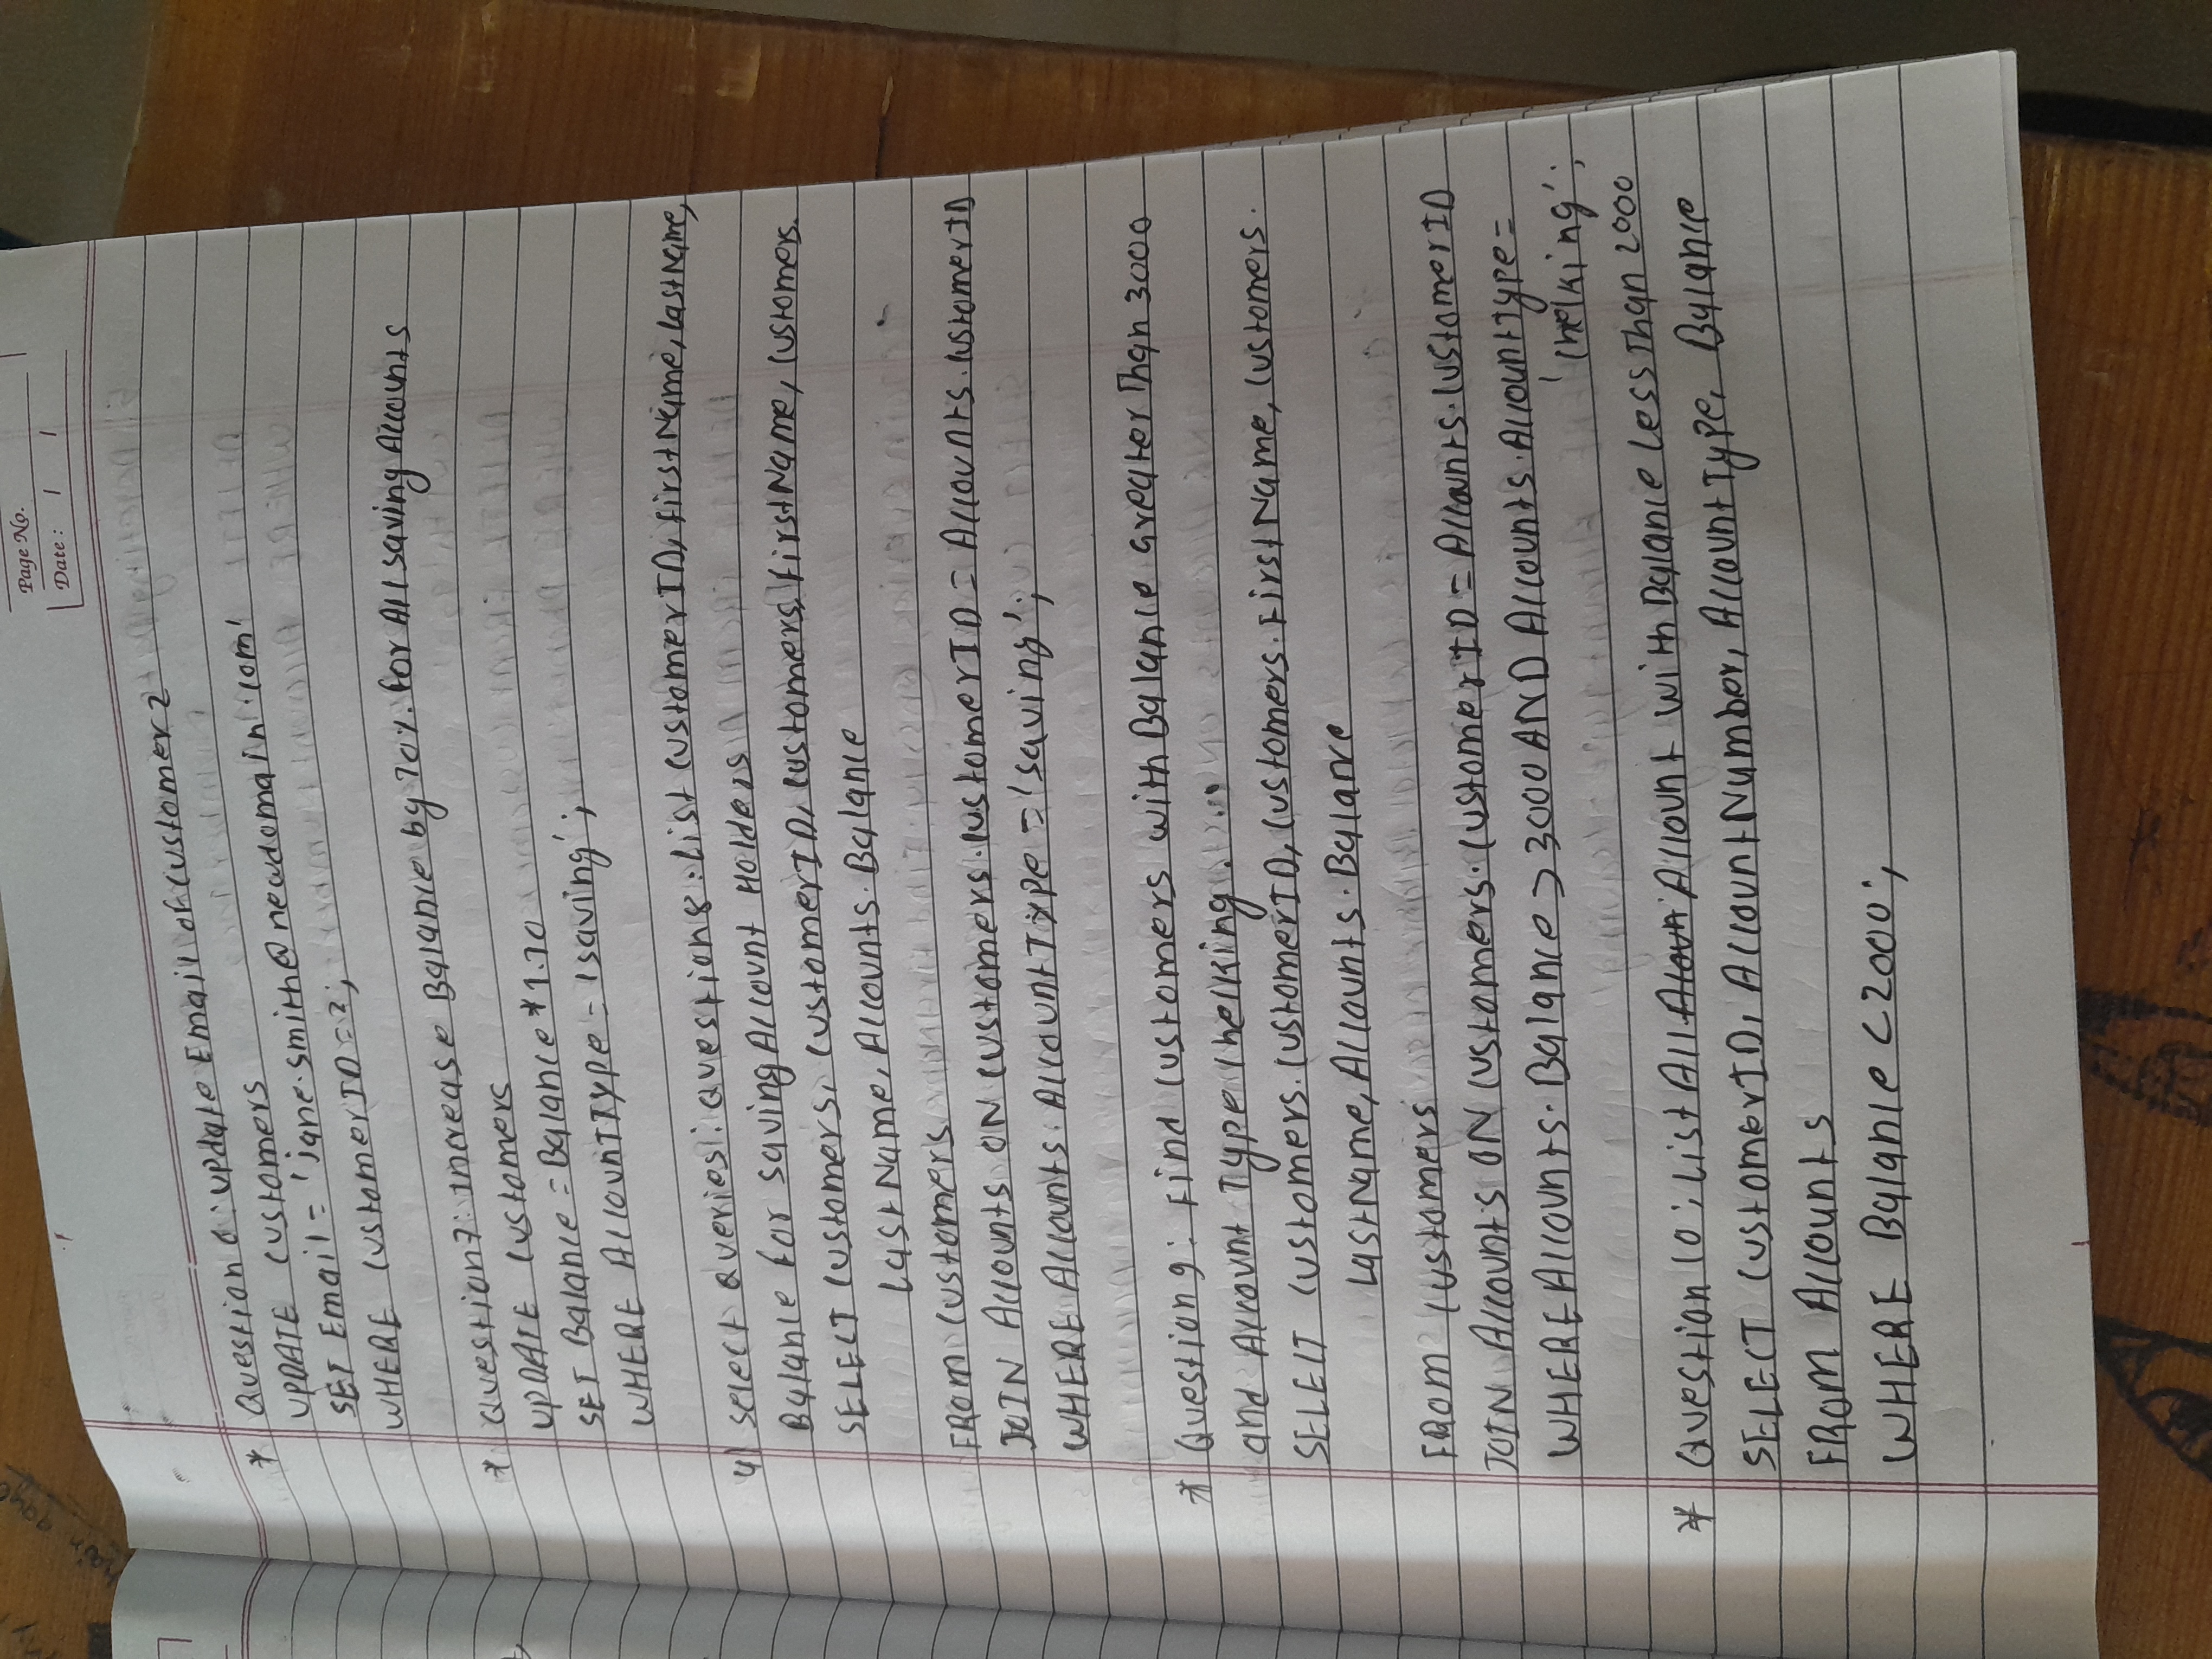 Page No.
Date : / /
* Question 6 : Update Email of Customer 2
UPDATE Customers
SET Email = 'jane.smith@newdomain.com'
WHERE CustomerID = 2;
* Question 7: Increase Balance by 10%. for All saving Accounts
UPDATE Customers
SET Balance = Balance * 1.10
WHERE AccountType = 'saving';
4) Select Queries: Question 8 : List CustomerID, FirstName, LastName,
Balance for saving Account Holders
SELECT Customers. CustomerID, Customers. FirstName, Customers.
LastName, Accounts. Balance
FROM Customers
JOIN Accounts ON Customers.CustomerID = Accounts.CustomerID
WHERE Accounts. AccountType = 'saving';
* Question 9 : Find Customers with Balance Greater Than 3000
and Account Type Checking.
SELECT Customers. CustomerID, Customers. FirstName, Customers.
LastName, Accounts. Balance
FROM Customers
JOIN Accounts ON Customers. CustomerID = Accounts.CustomerID
WHERE Accounts. Balance > 3000 AND Accounts.AccountType =
'Checking';
* Question 10 : List All Account with Balance Less Than 2000
SELECT CustomerID, AccountNumber, AccountType, Balance
FROM Accounts
WHERE Balance < 2000;